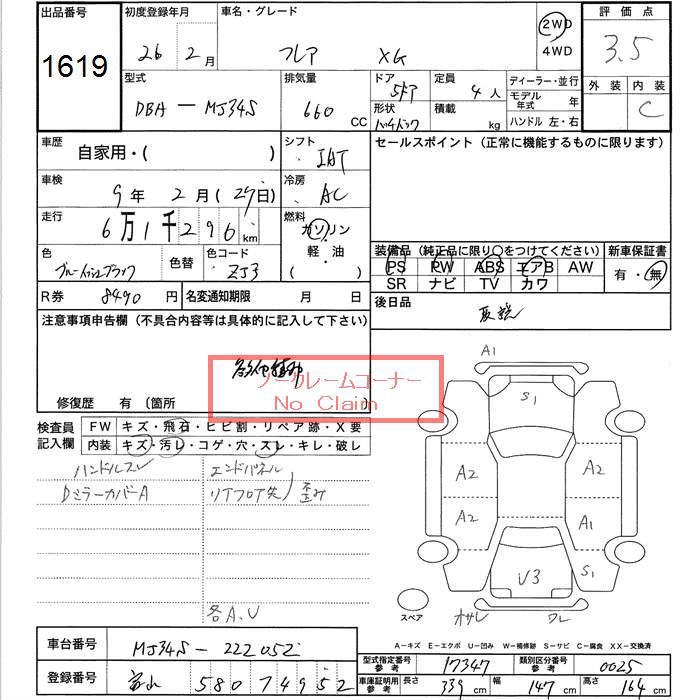 出品番号 初度登録年月 車名・グレード 2WD 評価点
1619 26年 2月 フレア XG 4WD 3.5
型式 排気量 ドア 5ドア 定員 4人 ディーラー・並行 外装 内装
DBA-MJ34S 660 CC 形状 ハッチバック 積載 kg モデル年式 年 C
ハンドル 左・右
車歴 自家用・( ) シフト IAT セールスポイント (正常に機能するものに限ります)
車検 9年 2月 (27日) 冷房 AC
走行 6万1千296km 燃料 ガソリン
軽・油
( )
色 ブルーイッシュブラック 色替 色コード ZJ3 装備品 (純正品に限り○をつけてください) 新車保証書
PS PW ABS エアB AW 有・無
SR ナビ TV カワ
R券 8490円 名変通知期限 月 日 後日品 取説
注意事項申告欄 (不具合内容等は具体的に記入して下さい)
ノークレームコーナー
No Claim
修復歴 有 〔箇所
検査員記入欄 FW キズ・飛石・ヒビ割・リペア跡・X要
内装 キズ・汚レ・コゲ・穴・スレ・キレ・破レ
ハンドルスレ エンドパネル
DミラーカバーA リアフロア先 歪み
各A、U
A1
S1
A2 A2
A2 A1
U3 S1
スペア
A-キズ E-エクボ U-凹み W-補修跡 S-サビ C-腐食 XX-交換済
車台番号 MJ34S-222052
登録番号 富山 580 7 4952
型式指定番号 参考 17347 類別区分番号 参考 0025
車庫証明用 参考 長さ 339cm 幅 147cm 高さ 164cm